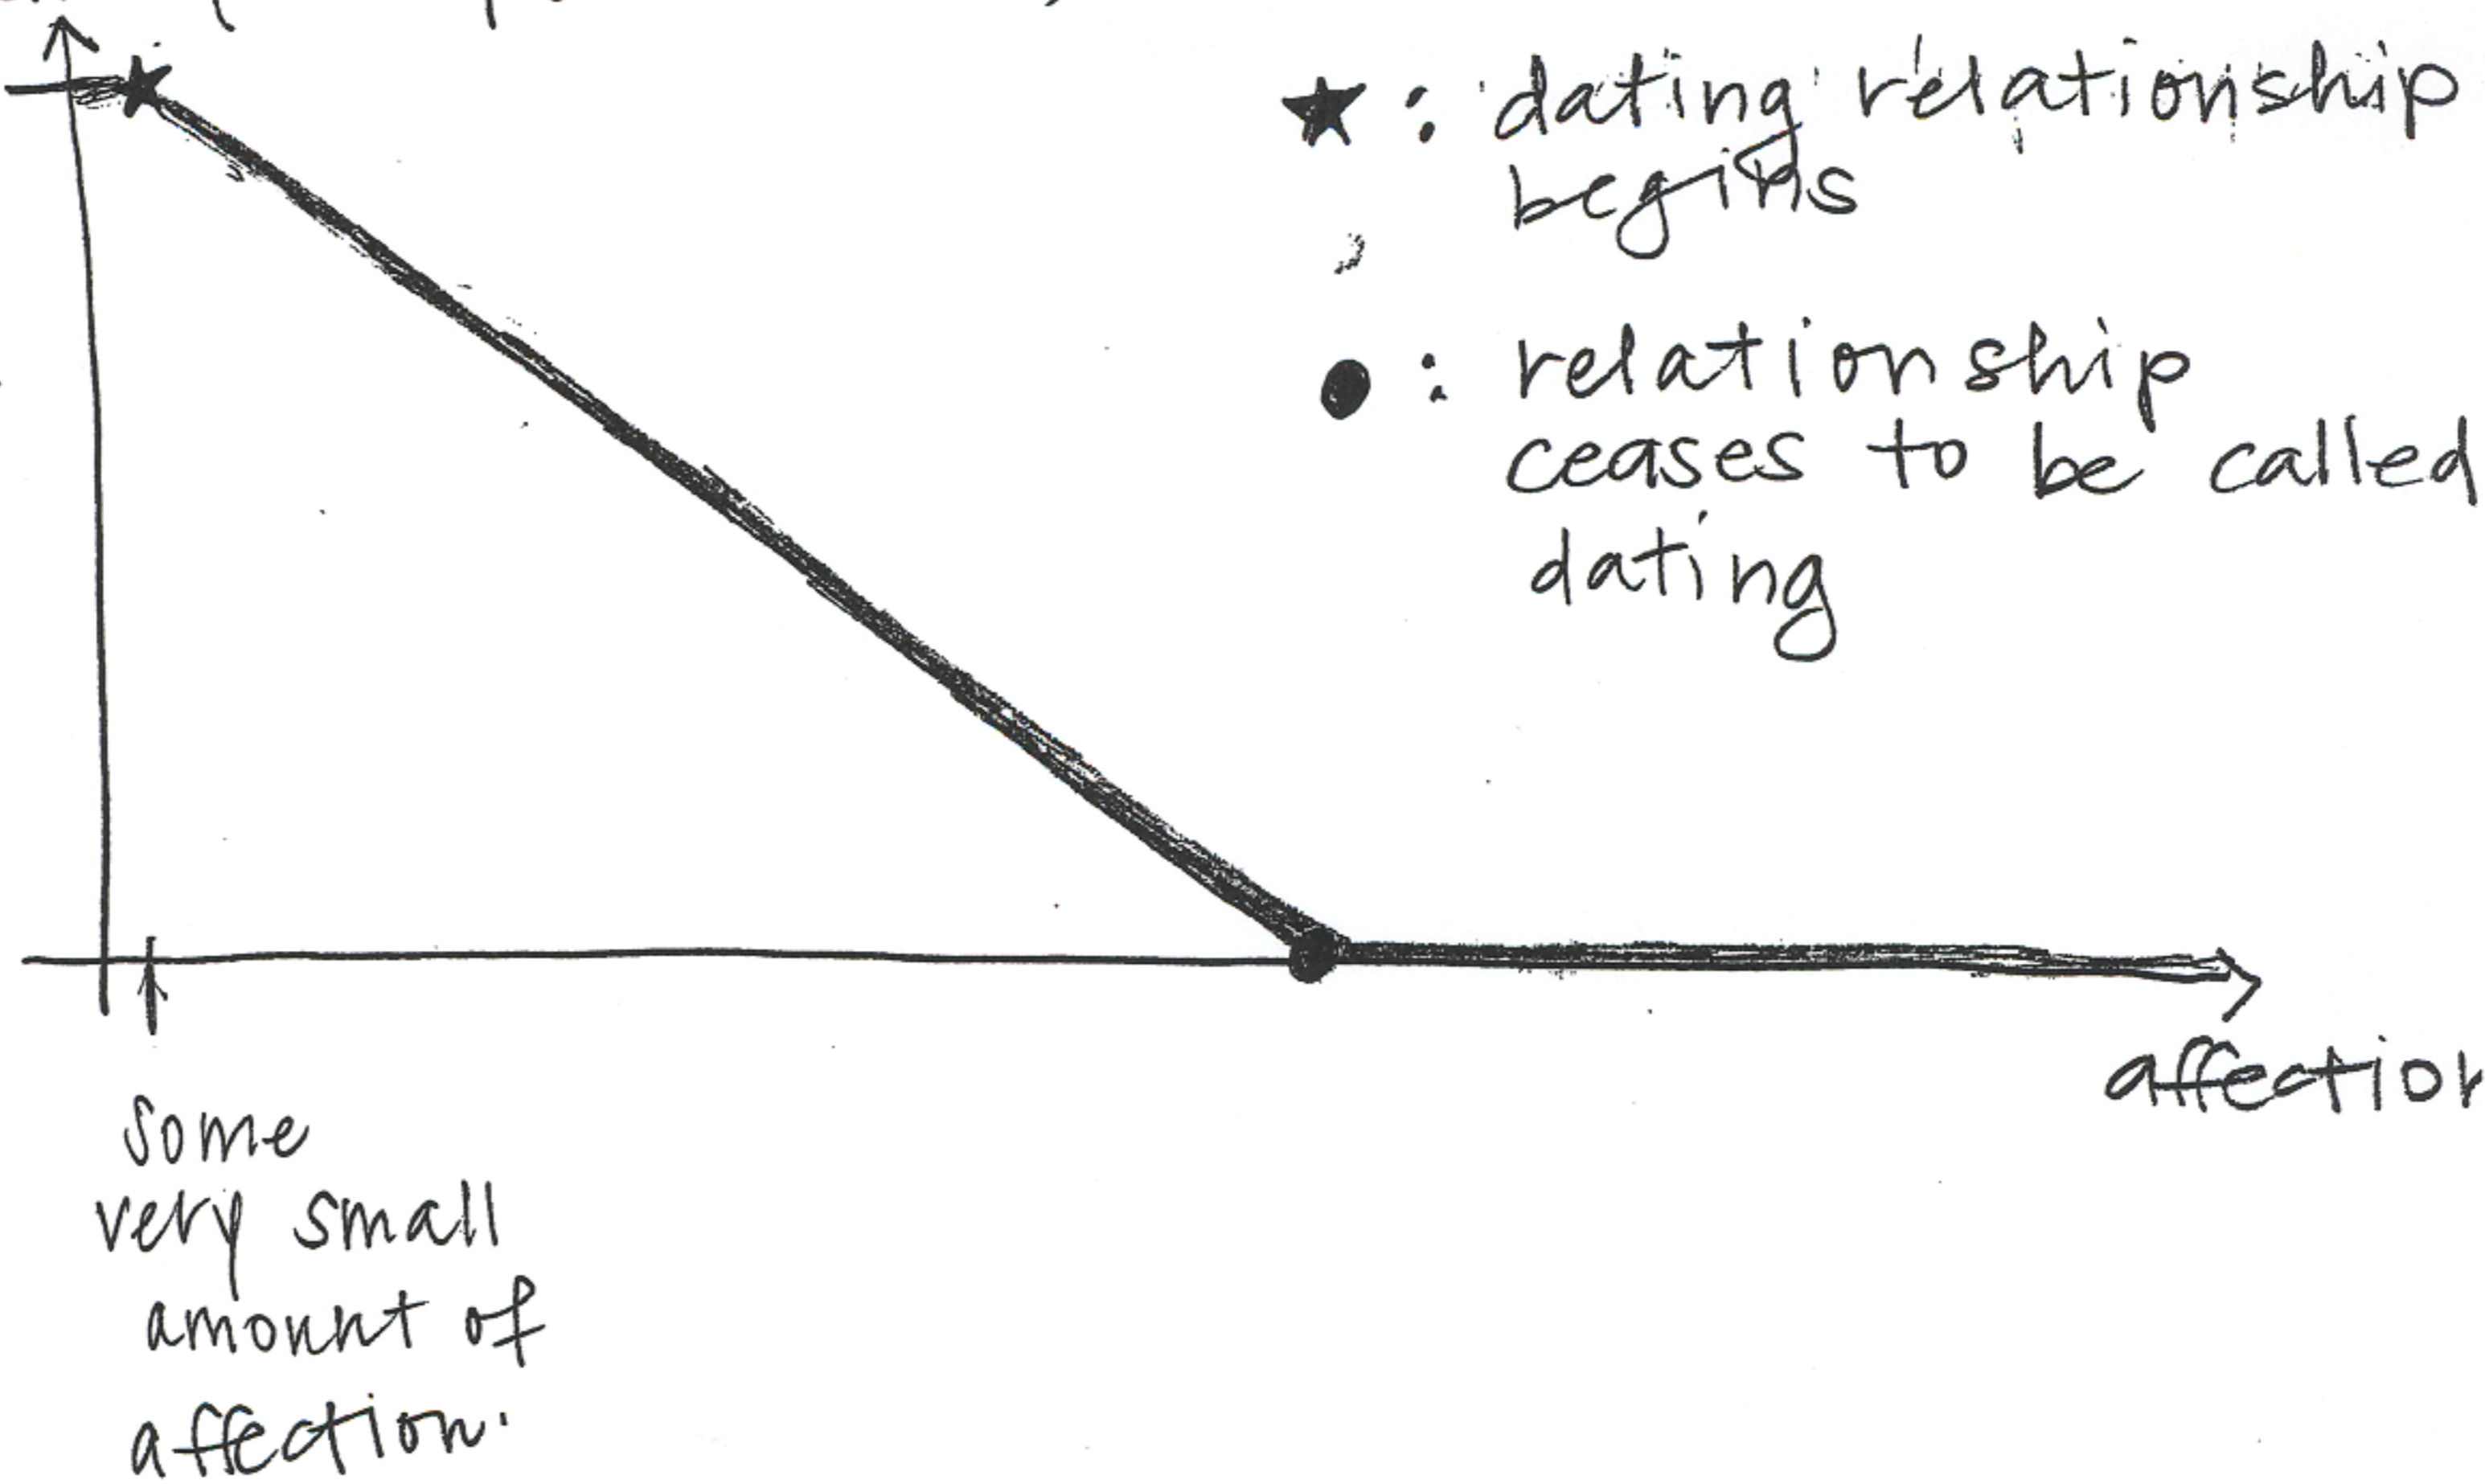 ★: dating relationship
begins
●: relationship
ceases to be called
dating
affection
some
very small
amount of
affection.